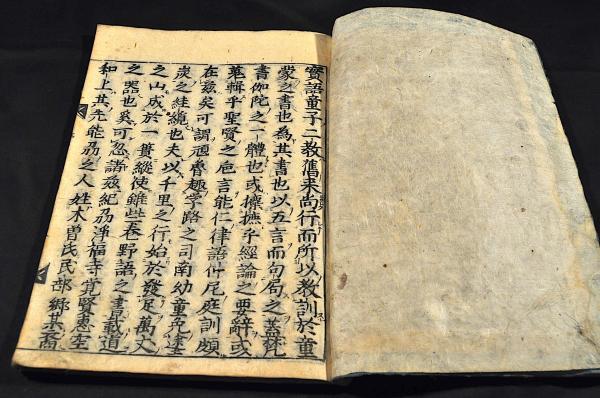 寶語童子二教舊来尚行而所以教訓於童
蒙之書也為其書也以五言而句局之蓋梵
書伽陀之一體也或摭乎經論之要辭或
蒐輯乎聖賢之巵言能仁律語仲尼庭訓頗
在茲矣可謂頑魯趣学路之司南幼童免塗
炭之也夫以千里之行始於發足萬丈
之山成於一簣縱使雖些巷野語之書載道
之器也奚可忽諸茲紀刕淨福寺覚賢惠空
和上其先能刕之人姓木曽氏民部卿某裔